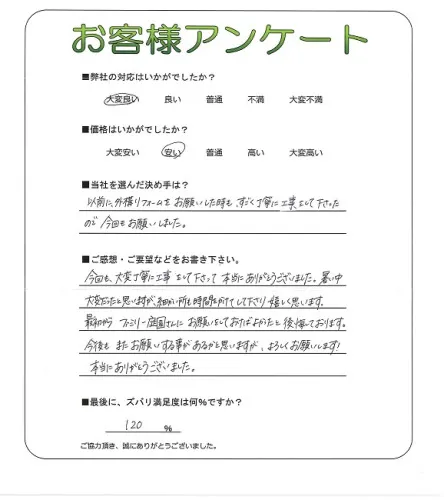 お客様アンケート
■弊社の対応はいかがでしたか？
大変良い 良い 普通 不満 大変不満
■価格はいかがでしたか？
大変安い 安い 普通 高い 大変高い
■当社を選んだ決め手は？
以前に、外構リフォームをお願いした時も、すごく丁寧に工事をして下さった
ので 今回もお願いしました。
■ご感想・ご要望などをお書き下さい。
今回も、大変丁寧に工事をして下さって 本当にありがとうございました。暑い中
大変だったと思いますが、細かい所も時間をかけてして下さり 嬉しく思います。
最初から ファミリー庭園さんに お願いをしておけばよかったと後悔しております。
今後も またお願いする事があるかと思いますが、よろしくお願いします!
本当にありがとうございました。
■最後に、ズバリ満足度は何%ですか？
120 %
ご協力頂き、誠にありがとうございました。